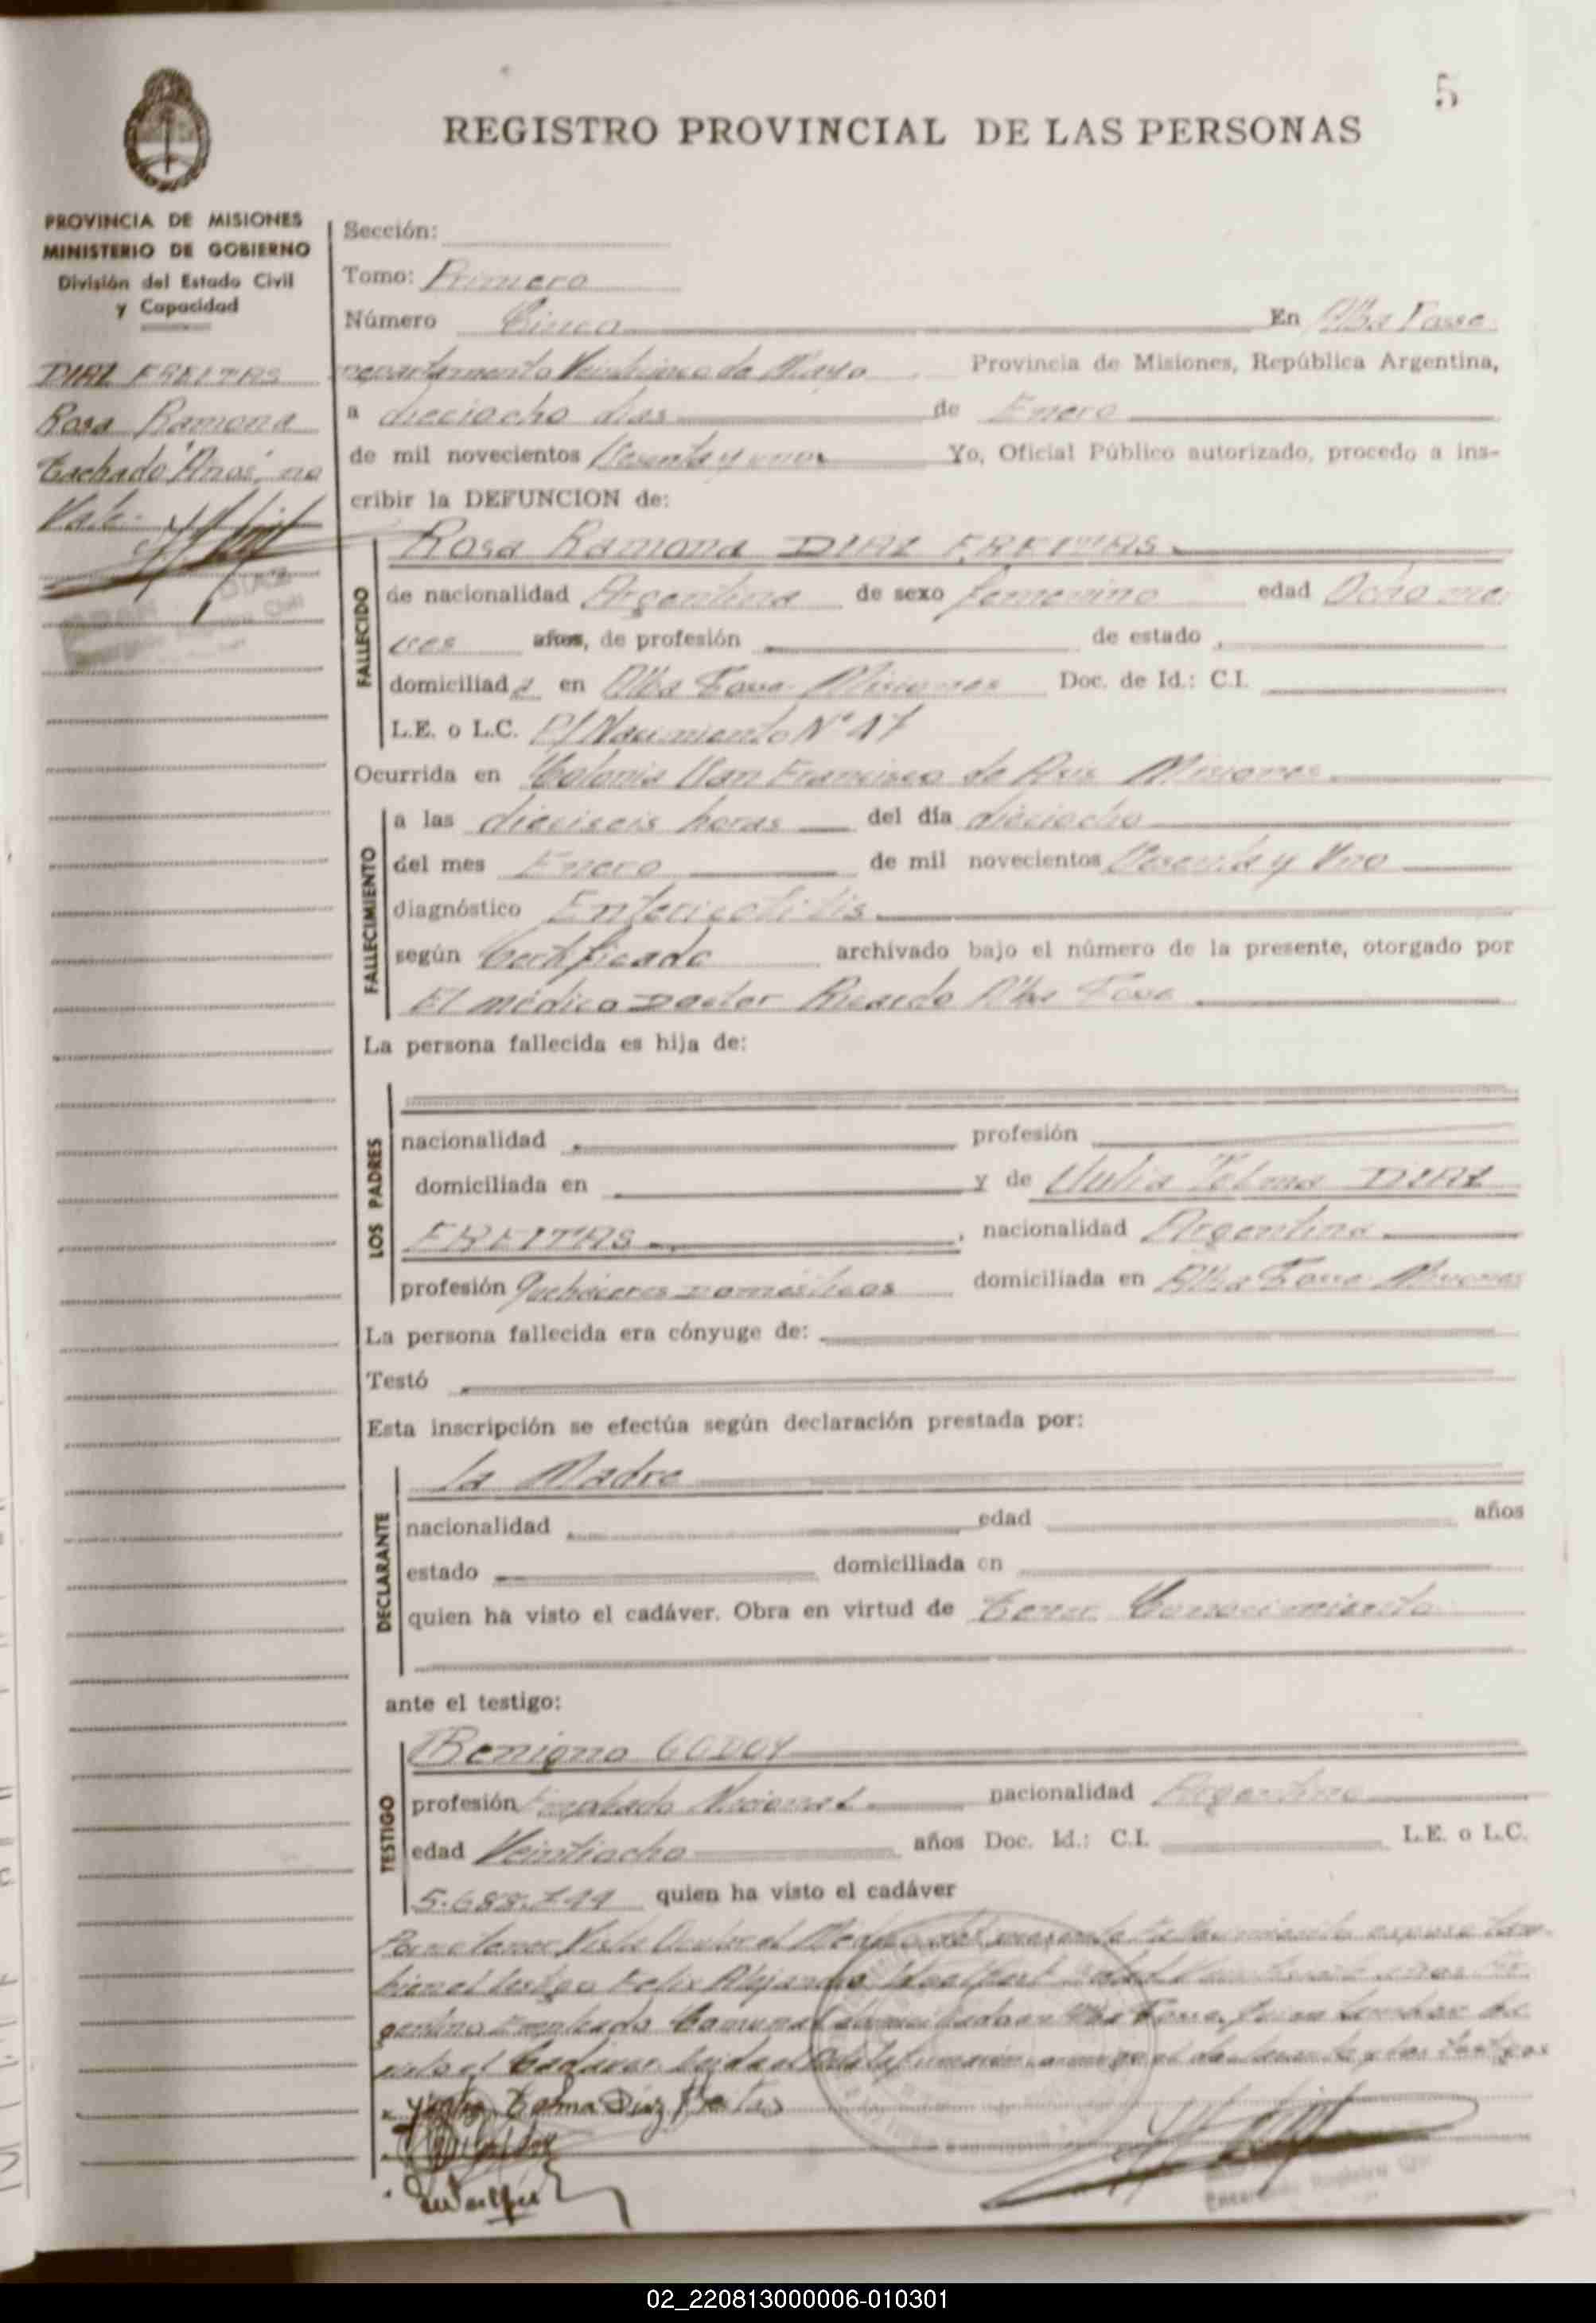 5
REGISTRO PROVINCIAL DE LAS PERSONAS
PROVINCIA DE MISIONES
MINISTERIO DE GOBIERNO
División del Estado Civil
y Capacidad
DIAZ FREITAS
Rosa Ramona
Tachado "Años", no
Vale.
Sección:
Tomo: Primero
Número Cinco En Alba Posse
departamento Veinticinco de Mayo Provincia de Misiones, República Argentina,
a dieciocho dias de Enero
de mil novecientos sesenta y uno Yo, Oficial Público autorizado, procedo a ins-
cribir la DEFUNCION de:
Rosa Ramona DIAZ FREITAS
FALLECIDO
de nacionalidad Argentina de sexo femenino edad Ocho me
ses años, de profesión de estado
domiciliada en Alba Posse Misiones Doc. de Id.: C.I.
L.E. o L.C. P/Nacimiento Nº 17
Ocurrida en Colonia San Francisco de Asis Misiones
FALLECIMIENTO
a las dieciseis horas del día dieciocho
del mes Enero de mil novecientos Sesenta y Uno
diagnóstico
según Certificado archivado bajo el número de la presente, otorgado por
El médico Doctor Ricardo Alba Posse
La persona fallecida es hija de:
LOS PADRES
nacionalidad profesión
domiciliada en y de Julia Telma DIAZ
FREITAS, nacionalidad Argentina
profesión Quehaceres domésticos domiciliada en Alba Posse Misiones
La persona fallecida era cónyuge de:
Testó
Esta inscripción se efectúa según declaración prestada por:
DECLARANTE
la Madre
nacionalidad edad años
estado domiciliada en
quien ha visto el cadáver. Obra en virtud de tener Conocimiento
ante el testigo:
TESTIGO
Benigno GODOY
profesión Empleado Nacional nacionalidad Argentino
edad Veintiocho años Doc. Id.: C.I. L.E. o L.C.
5.688.744 quien ha visto el cadáver
Para tener Vista el presente tam-
bien el testigo Felix Alejandro Ar-
gentino Empleado Comunal domiciliado en Alba Posse, quien tambien ha
visto el Cadaver. Leida el Acta la firmaron conmigo el declarante y los testigos
Telma Diaz Freitas
02_220813000006-010301